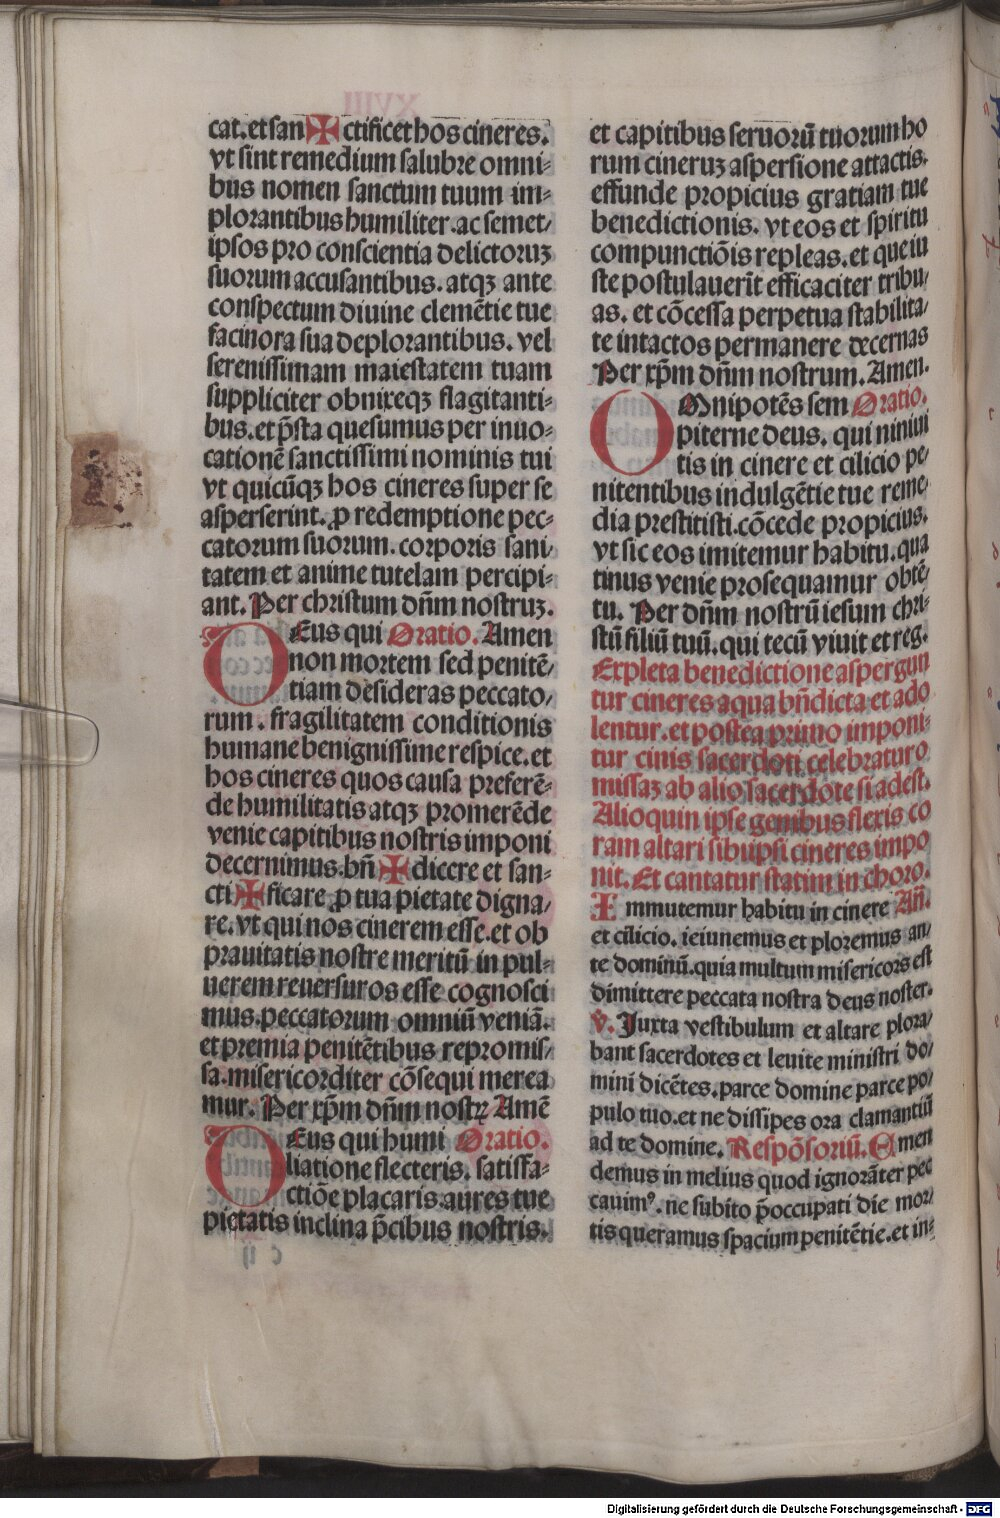 cat. et san✠ctificet hos cineres.
vt sint remedium salubre omni-
bus nomen sanctum tuum im-
plorantibus humiliter. ac semet-
ipsos pro conscientia delictoruꝫ
suorum accusantibus. atqꝫ ante
conspectum diuine clemētie tue
facinora sua deplorantibus. vel
serenissimam maiestatem tuam
suppliciter obnixeqꝫ flagitanti-
bus. et p̄sta quesumus per inuo-
cationē sanctissimi nominis tui
vt quicūqꝫ hos cineres super se
asperserint. ꝓ redemptione pec-
catorum suorum. corporis sani-
tatem et anime tutelam percipi-
ant. Per christum dn̄m nostruꝫ.
DEus qui Oratio. Amen
non mortem sed penitē-
tiam desideras peccato-
rum. fragilitatem conditionis
humane benignissime respice. et
hos cineres quos causa preferē-
de humilitatis atqꝫ promerēde
venie capitibus nostris imponi
decernimus. bn̄✠dicere et san-
cti✠ficare ꝓ tua pietate digna-
re. vt qui nos cinerem esse. et ob
prauitatis nostre meritū in pul-
uerem reuersuros esse cognosci
mus. peccatorum omniū veniā.
et premia penitētibus repromis-
sa. misericorditer cōsequi merea
mur. Per xp̄m dn̄m nostrꝝ Amē
DEus qui humi Oratio.
liatione flecteris. satisfa-
ctiōe placaris. aures tue
pietatis inclina p̄cibus nostris.
et capitibus seruorū tuorum ho
rum cineruꝫ aspersione attactis.
effunde propicius gratiam tue
benedictionis. vt eos et spiritu
compunctiōis repleas. et que iu
ste postulauerīt efficaciter tribu-
as. et cōcessa perpetua stabilita-
te intactos permanere decernas
Per xp̄m dn̄m nostrum. Amen.
OMnipotēs sem Oratio.
piterne deus. qui niniui
tis in cinere et cilicio pe-
nitentibus indulgētie tue reme-
dia prestitisti. cōcede propicius.
vt sic eos imitemur habitu. qua
tinus venie prosequamur obtē-
tu. Per dn̄m nostrū iesum chri-
stū filiū tuū. qui tecū viuit et reg.
Expleta benedictione aspergun
tur cineres aqua bn̄dicta et ado
lentur. et postea primo imponi-
tur cinis sacerdoti celebraturo
missaꝫ ab alio sacerdote si adest.
Alioquin ipse genibus flexis co
ram altari sibiipsi cineres impo
nit. Et cantatur statim in choro.
Immutemur habitu in cinere An̄.
et cilicio. ieiunemus et ploremus an-
te dominū. quia multum misericors est
dimittere peccata nostra deus noster.
V̄. Juxta vestibulum et altare plora-
bant sacerdotes et leuite ministri do-
mini dicētes. parce domine parce po-
pulo tuo. et ne dissipes ora clamantiū
ad te domine. Respōsoriū. Emen
demus in melius quod ignorāter pec
cauimꝰ. ne subito p̄occupati die mor-
tis queramus spacium penitētie. et in-
Digitalisierung gefördert durch die Deutsche Forschungsgemeinschaft - DFG